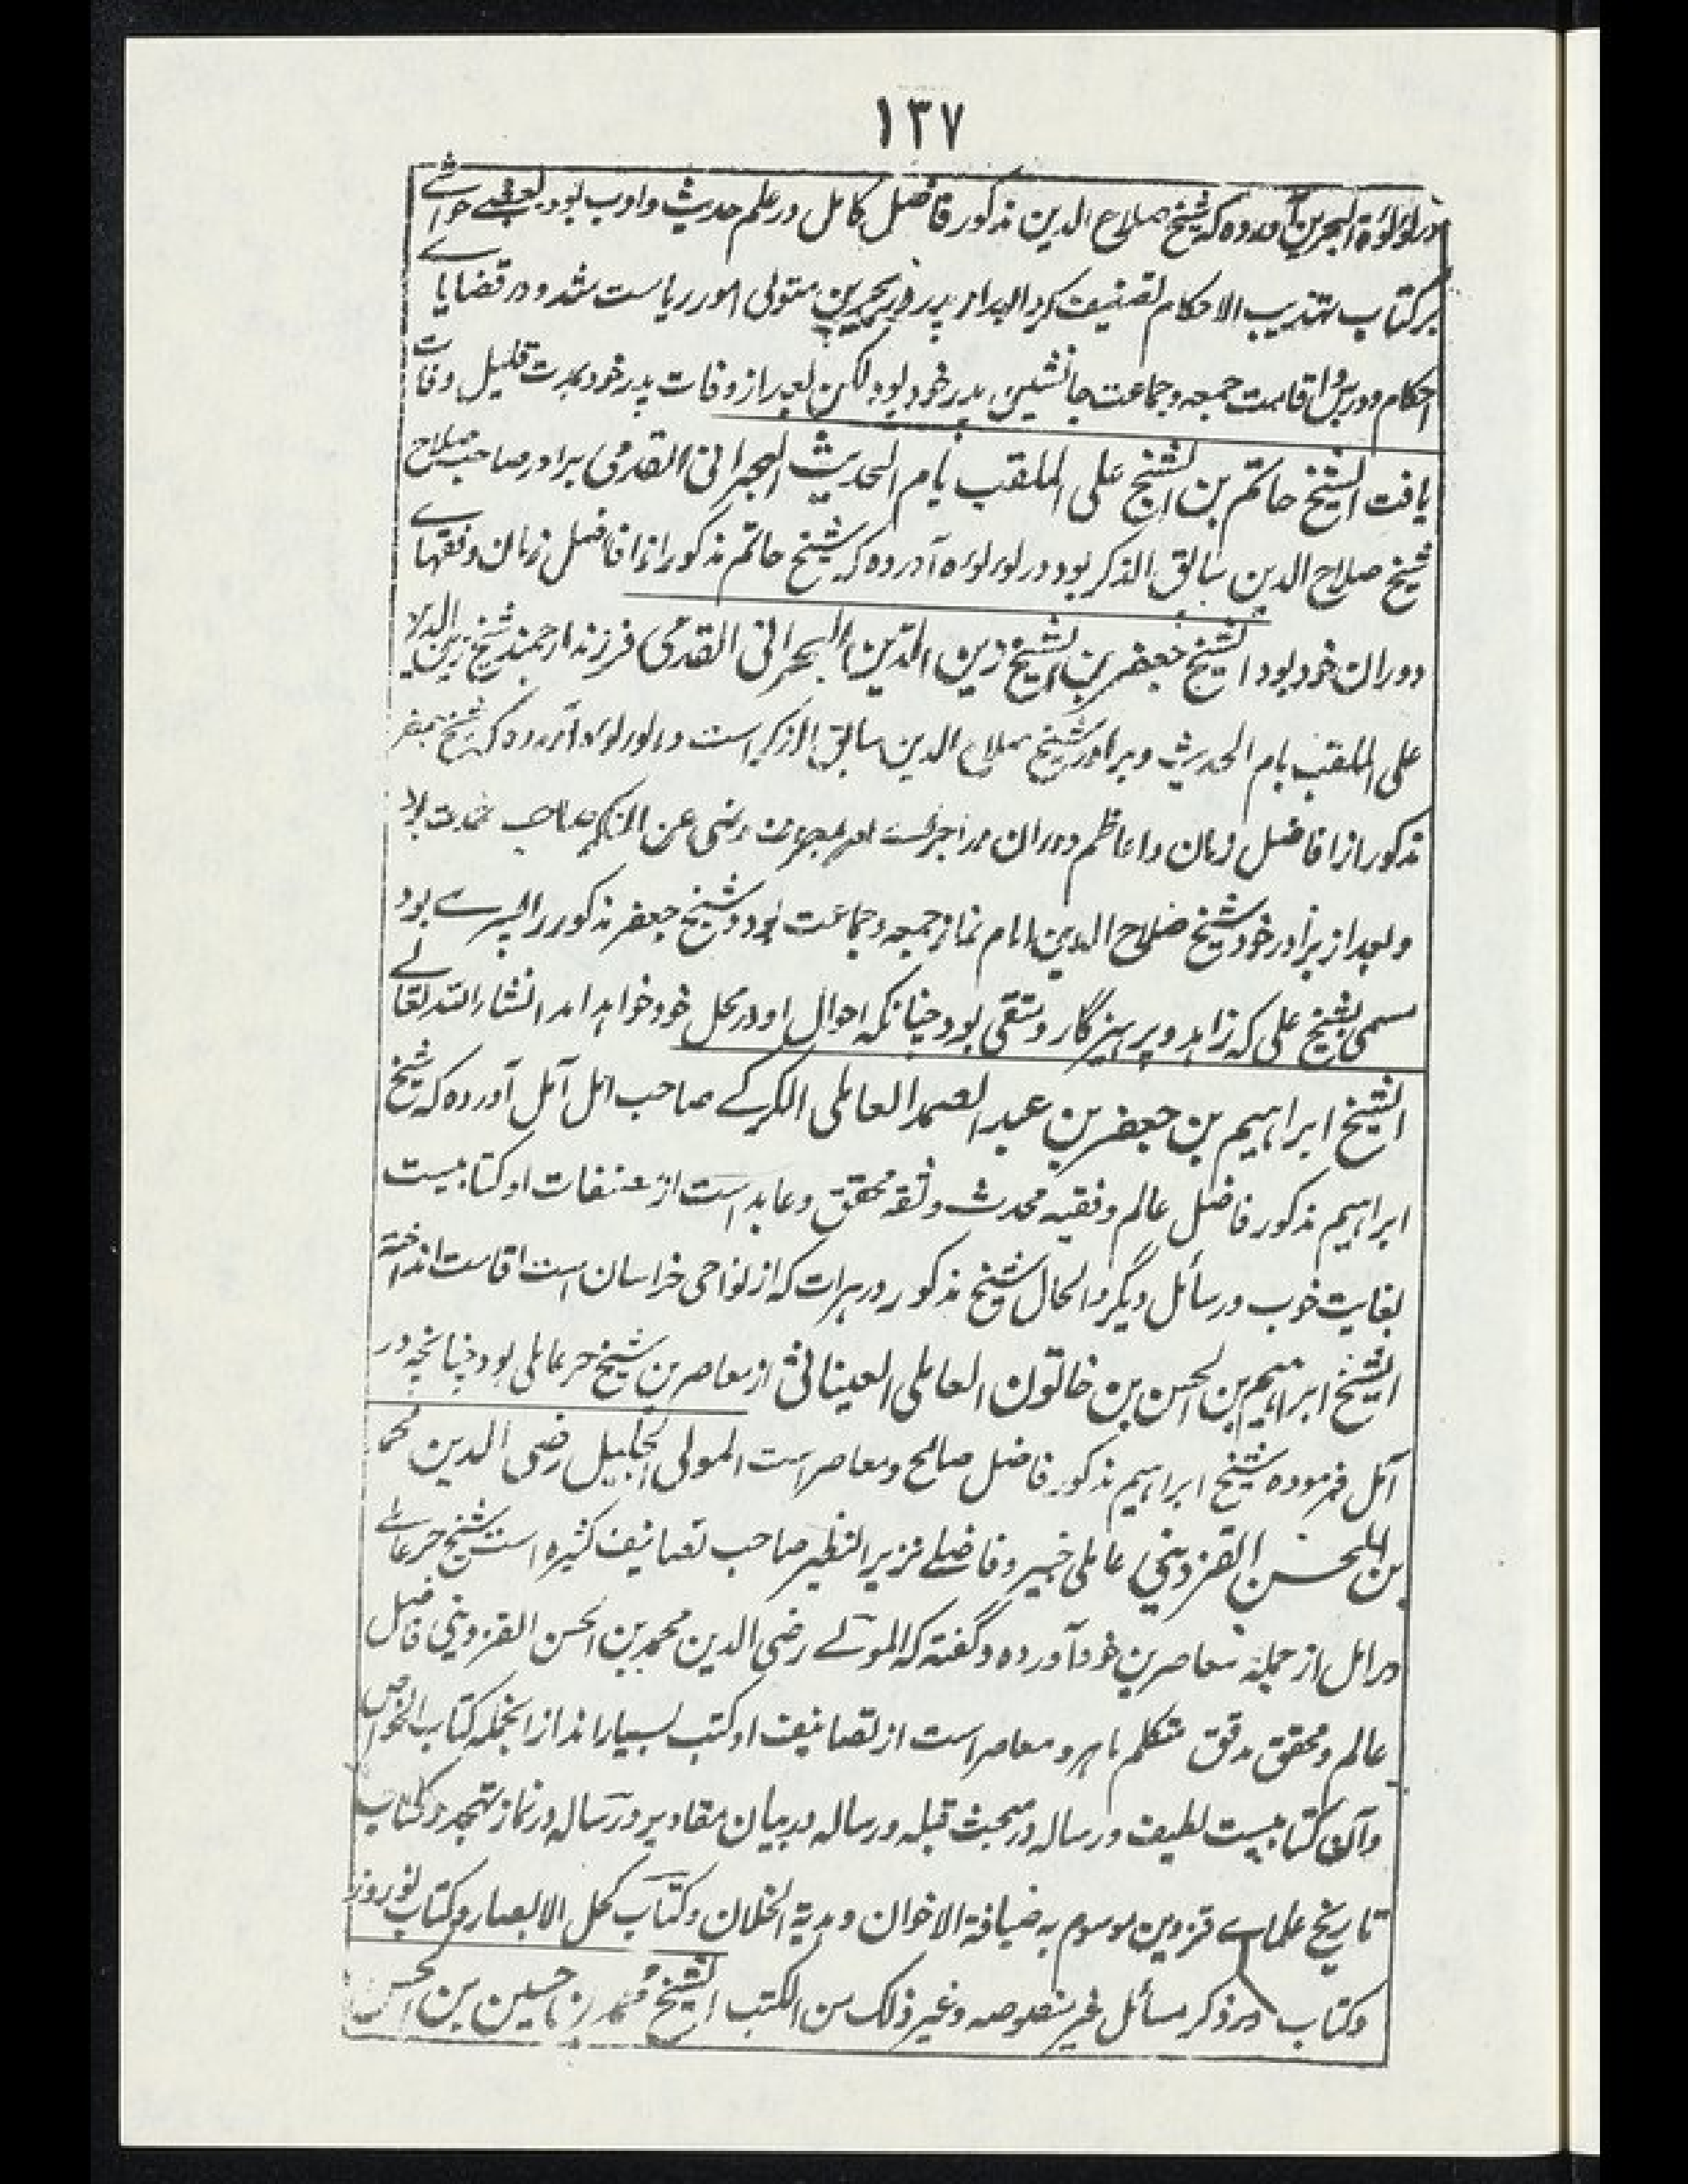 ۱۳۷
در لؤلؤة البحرین آورده که شیخ صلاح الدین مذکور فاضل کامل در علم حدیث و ادب بود بعضے حواشے
بر کتاب تهذیب الاحکام تصنیف کرد بعد از پدر در بحرین متولی امور ریاست شد و در قضایاے
احکام و درس و اقامت جمعه و جماعت جانشین پدر خود بود لکن بعد از وفات پدر خود بمدت قلیل وفات
یافت الشیخ حاتم بن الشیخ علی الملقب بام الحدیث البحرانی القدمی برادر صاحب صلاح
شیخ صلاح الدین سابق الذکر بود در لؤلؤه آورده که شیخ حاتم مذکور از افاضل زمان و فقهاے
دوران خود بود الشیخ جعفر بن الشیخ زین الدین البحرانی القدمی فرزند ارجمند شیخ زین الدین
علی الملقب بام الحدیث و برادر شیخ صلاح الدین سابق الذکر است در لؤلؤه آورده که شیخ جعفر
مذکور از افاضل زمان و اعاظم دوران در اجراے امر بمعروف و نهی عن المنکر صاحب شدت بود
و بعد از برادر خود شیخ صلاح الدین امام نماز جمعه و جماعت بود و شیخ جعفر مذکور را پسرے بود
مسمی بشیخ علی که زاهد و پرهیزگار و متقی بود چنانکه احوال او در محل خود خواهد آمد انشاء الله تعالے
الشیخ ابراهیم بن جعفر بن عبد الصمد العاملی الکرکے صاحب امل آمل آورده که شیخ
ابراهیم مذکور فاضل عالم و فقیه محدث و ثقه محقق و عابد است از مصنفات او کتابیست
بغایت خوب و رسائل دیگر والحال شیخ مذکور در هرات که از نواحی خراسان است اقامت انداخته
الشیخ ابراهیم بن الحسن بن خاتون العاملی العیناثی از معاصرین شیخ حر عاملی بود چنانچه در
آمل فرموده شیخ ابراهیم مذکور فاضل صالح و معاصر است المولی الجلیل رضی الدین محمد
بن الحسن القزوینی عاملی خبیر و فاضلے عزیز النظیر صاحب تصانیف کثیره است شیخ حر عاملے
در امل از جملۀ معاصرین خود آورده و گفته که المولے رضی الدین محمد بن الحسن القزوینی فاضل
عالم و محقق مدقق متکلم ماهر و معاصر است از تصانیف او کتب بسیار اند از انجمله کتاب الخواص
و آن کتابیست لطیف و رساله در مبحث قبله و رساله در بیان مقادیر و رساله در نماز تهجد و کتاب
تاریخ علماے قزوین موسوم به ضیافة الاخوان و هدیة الخلان و کتاب کحل الابصار و کتاب نوروز
و کتاب در ذکر مسائل غیر منصوصه و غیر ذلک من الکتب الشیخ محمد بن حسین بن الحسن